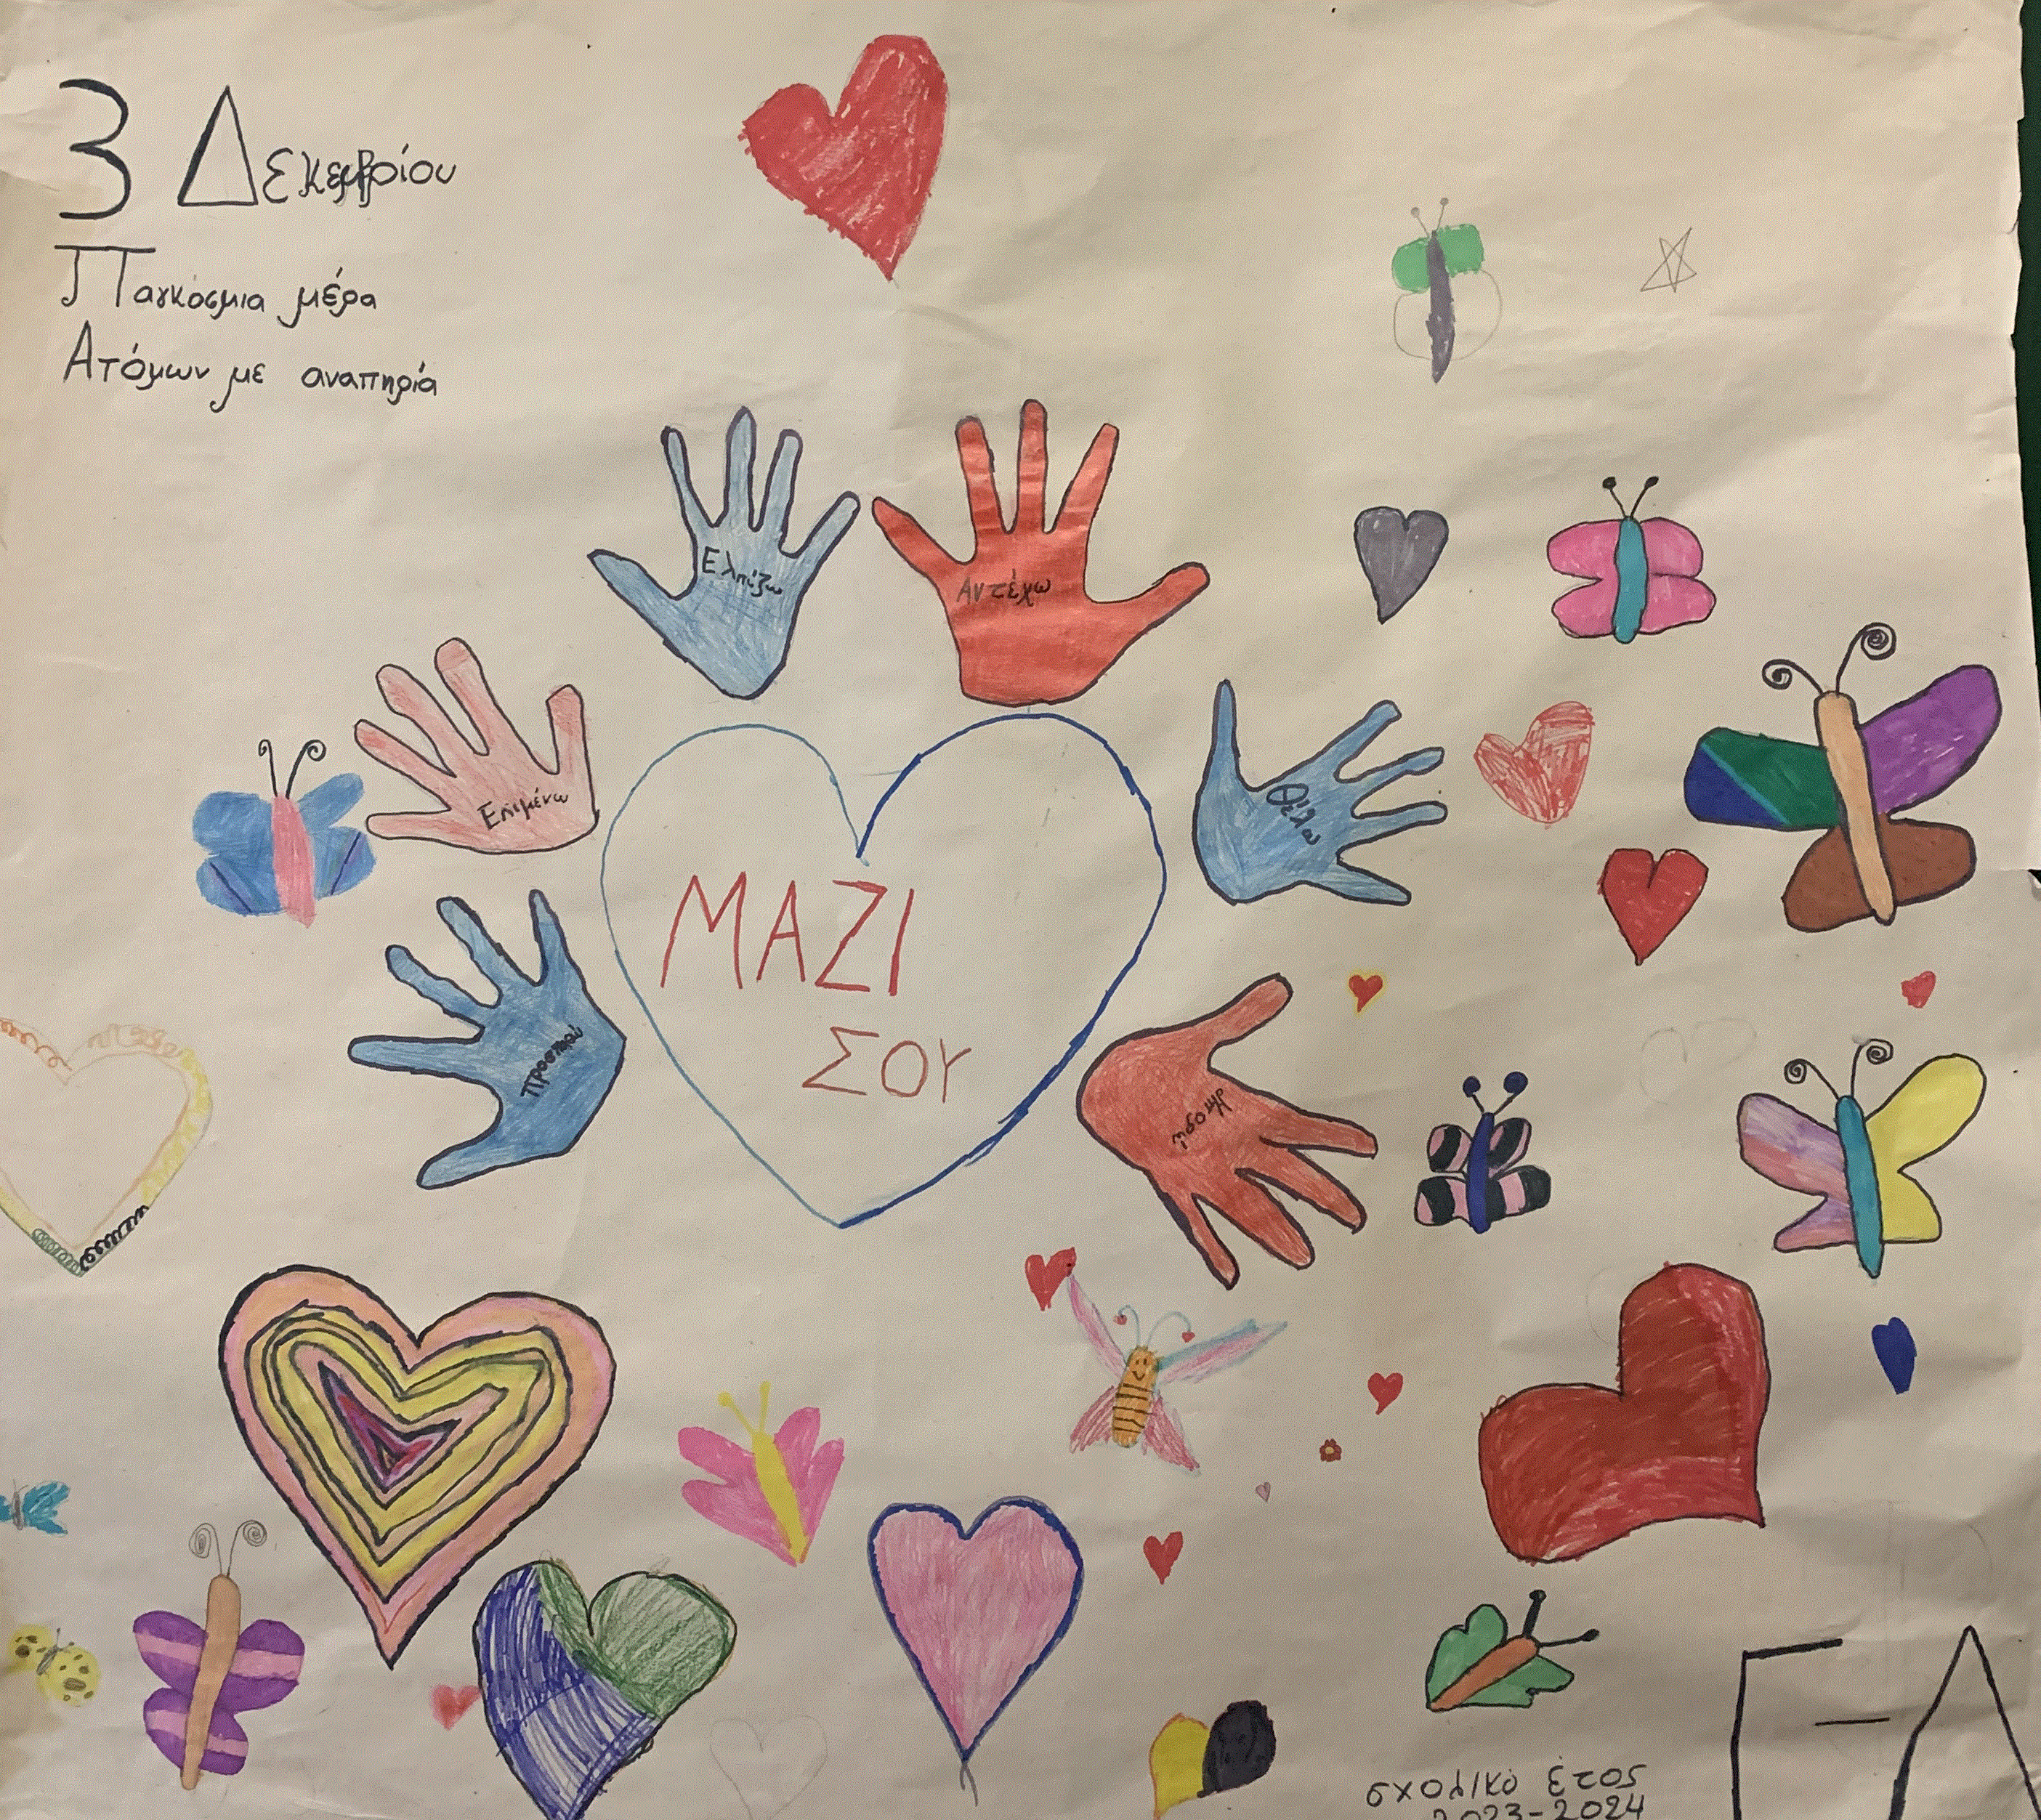 3 Δεκεμβρίου
Παγκόσμια μέρα
Ατόμων με αναπηρία
Ελπίζω
Αντέχω
Επιμένω
Θέλω
ΜΑΖΙ
ΣΟΥ
Προσπαθώ
σχολικό έτος
2023-2024